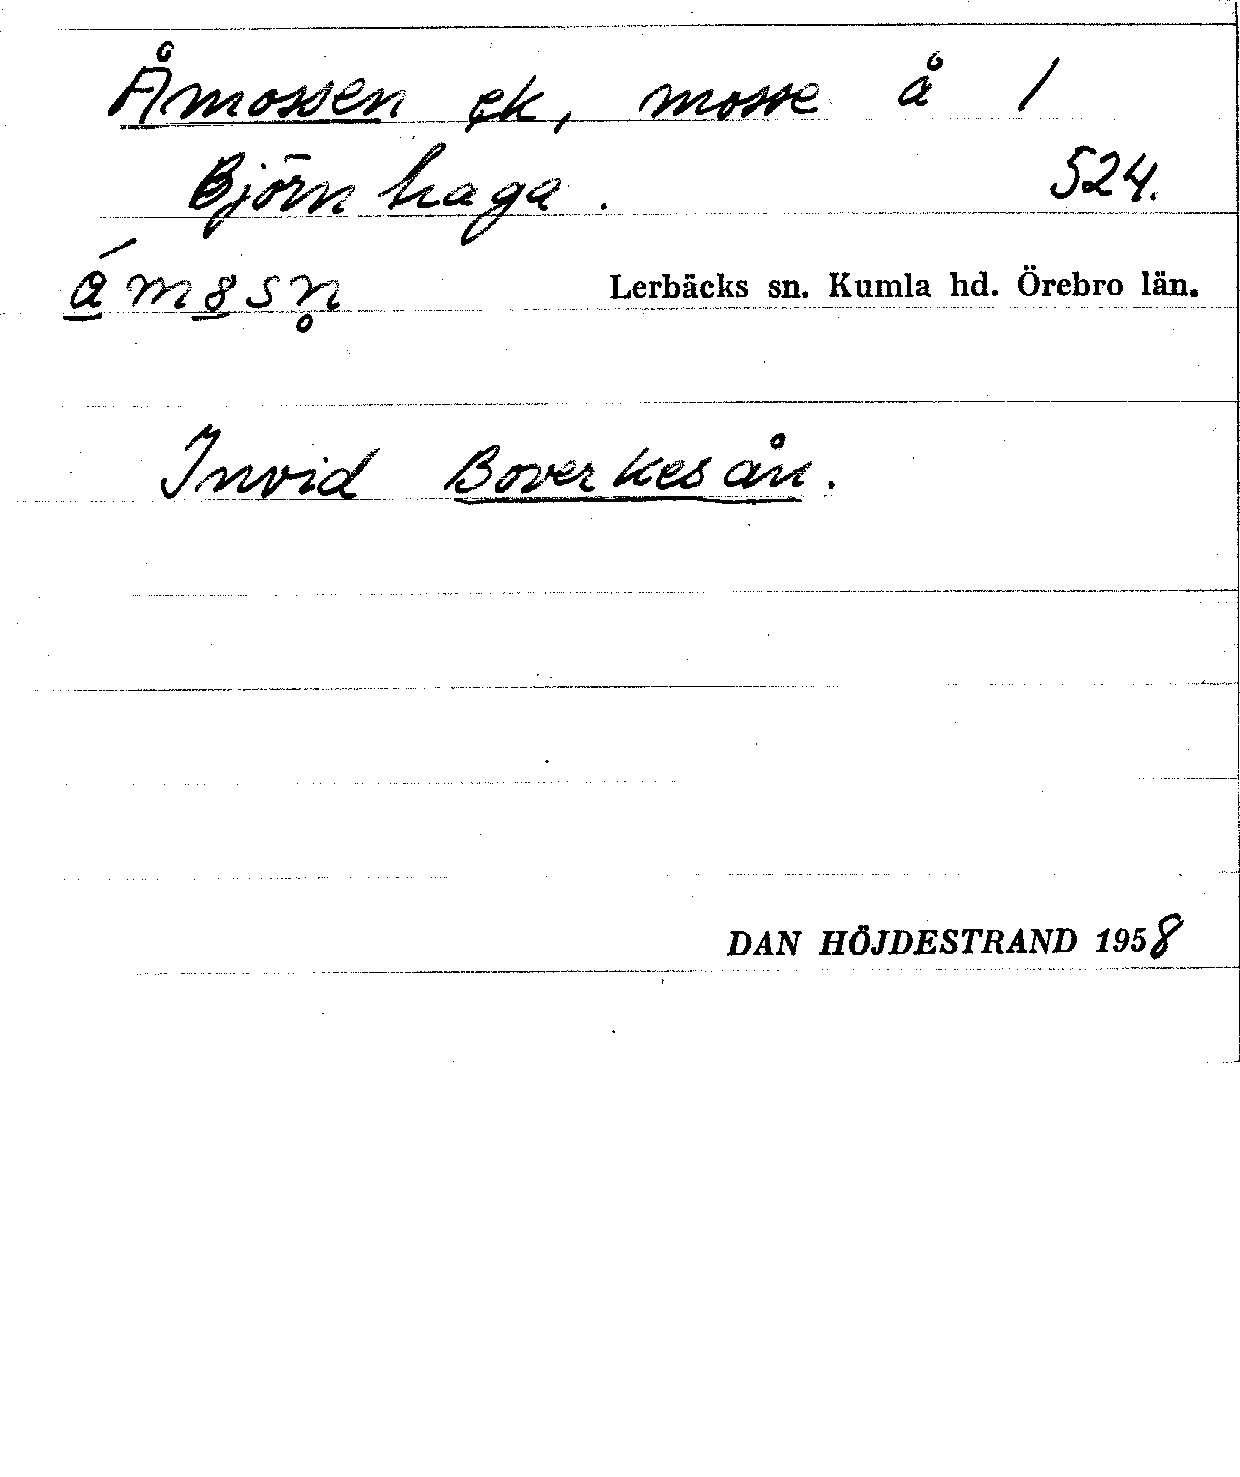 Åmossen ek, mosse å 1
Björnhaga. 524.
åmosn̥ Lerbäcks sn. Kumla hd. Örebro län.
Invid Boverkesån.
DAN HÖJDESTRAND 1958